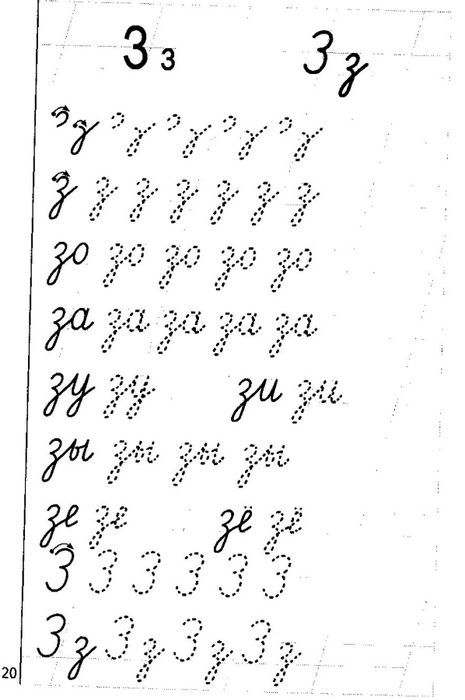 З з З з
з з з з з
з з з з з з з
зо зо зо зо зо
за за за за за
зу зу зи зи
зы зы зы зы
зе зе зё зё
З З З З З З
З з З з З з З з
20